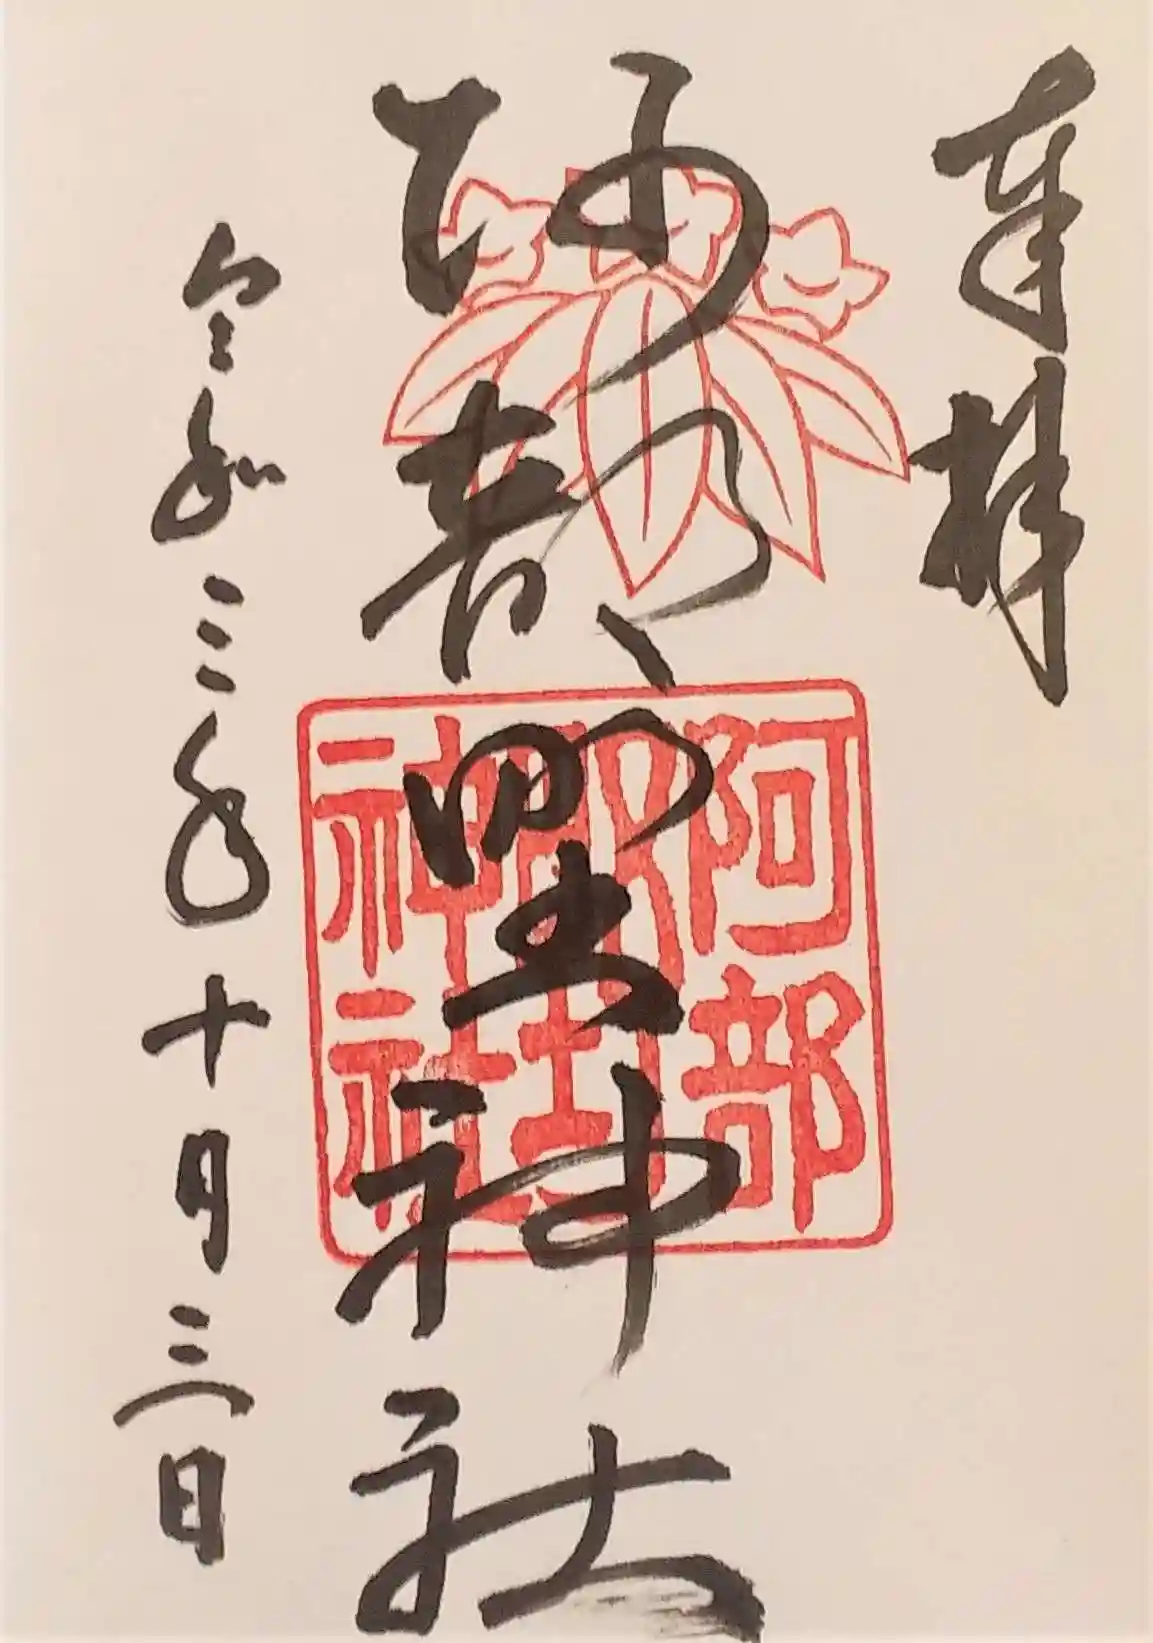 奉拝
阿部野神社
令和三年十月三日
阿部
野
神社